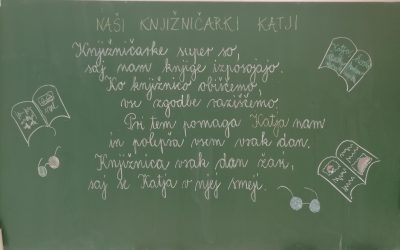 NAŠI KNJIŽNIČARKI KATJI
Knjižničarke super so,
saj nam knjige izposojajo.
Ko knjižnico obiščemo,
vse zgodbe raziščemo.
Pri tem pomaga Katja nam
in polepša vsem vsak dan.
Knjižnica vsak dan žari,
saj se Katja v njej smeji.